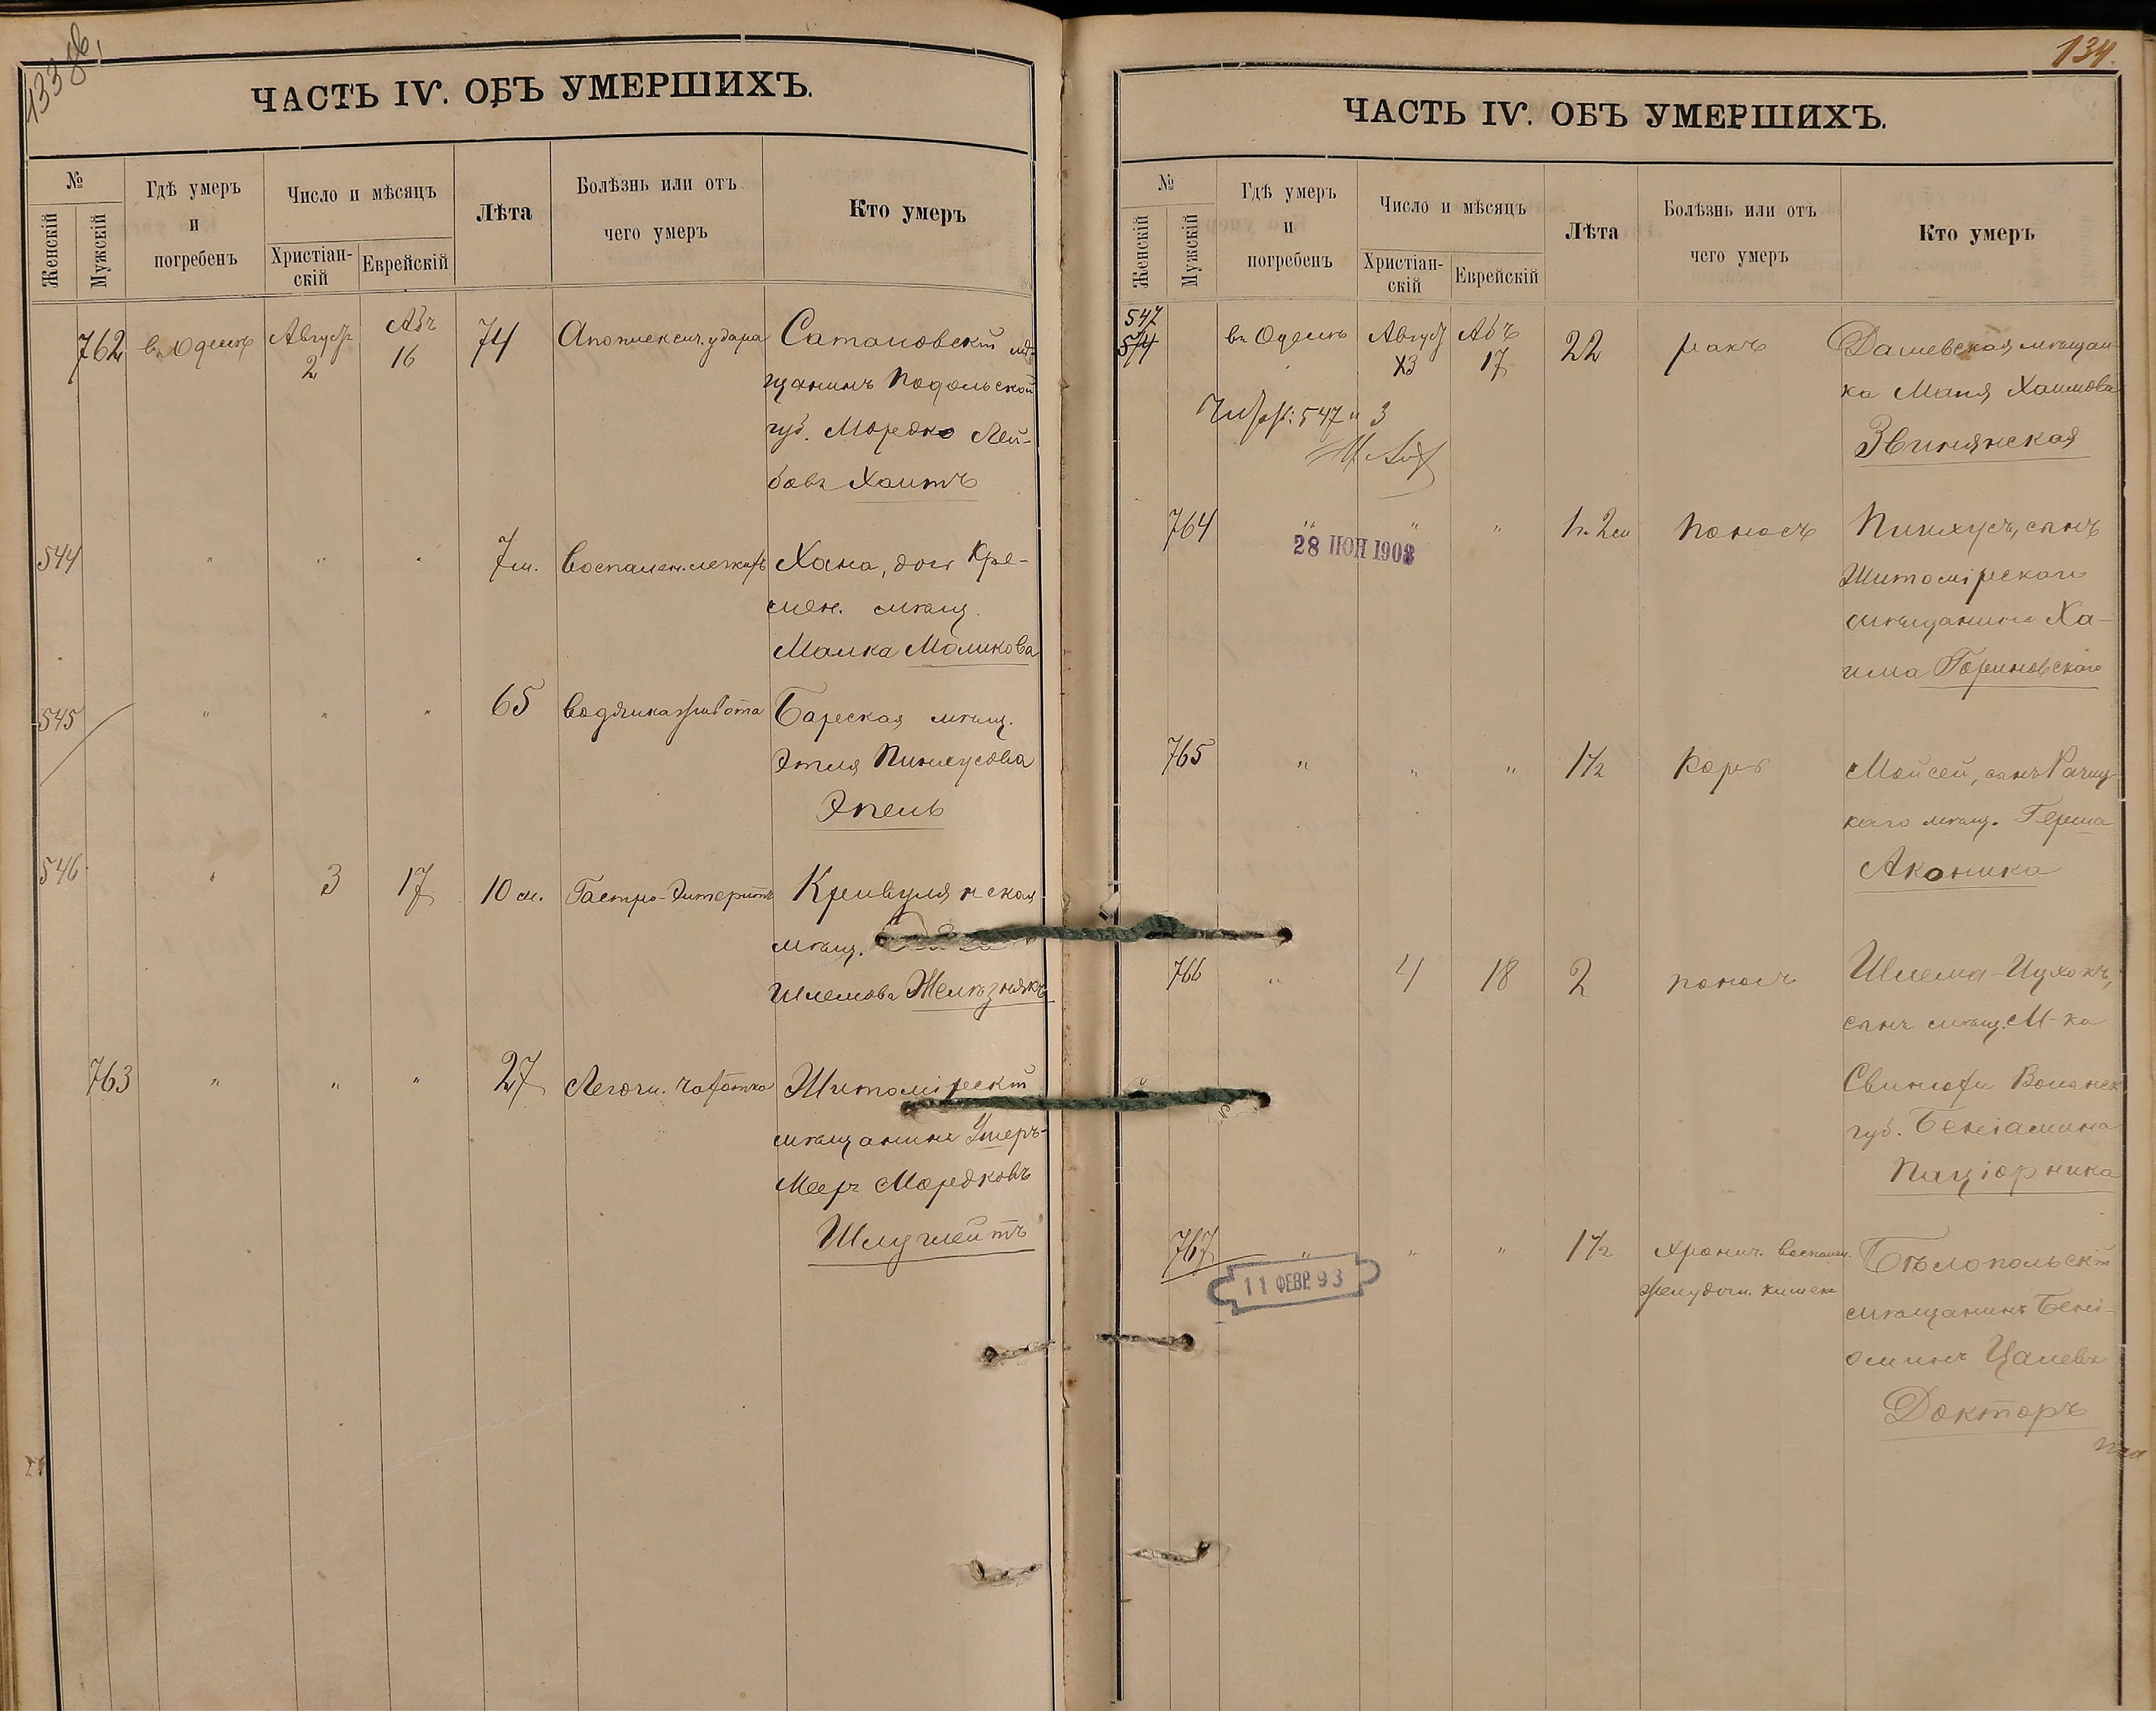 133 об,
ЧАСТЬ IV. ОБЪ УМЕРШИХЪ.
№
Женскій
Мужскій
Гдѣ умеръ
и
погребенъ
Число и мѣсяцъ
Христіан-
скій
Еврейскій
Лѣта
Болѣзнь или отъ
чего умеръ
Кто умеръ
762 въ Одессѣ Август 2 Абъ 16 74 Апоплексич. удара Сатановскій мѣ-
щанинъ Подольской
губ. Мордко Лей-
бовъ Хаитъ
544 " " " 7 м. Воспален. легкихъ Хана, доч Кре-
мен. мѣщ.
Малка Маликова
545 " " " 65 водянка живота Барская мѣщ.
Этля Пинхусова
Эпель
546 " 3 17 10 м. Гастро-Энтеритъ Кривулянская
мѣщ.
Шлемова Желѣзнякъ
763 " " " 27 Легочн. чахотка Житомірскій
мѣщанинъ Ушеръ-
Мееръ Мордковъ
Шлуглейтъ
134.
ЧАСТЬ IV. ОБЪ УМЕРШИХЪ.
№
Женскій
Мужскій
Гдѣ умеръ
и
погребенъ
Число и мѣсяцъ
Христіан-
скій
Еврейскій
Лѣта
Болѣзнь или отъ
чего умеръ
Кто умеръ
547 въ Одессѣ Август 3 Абъ 17 22 ракъ Дашевская мѣщан-
ка Маня Хаимова
Звинянская
547 и 3
764 " " " 1 г. 2 м Поносъ Пинхусъ, сынъ
28 ІЮН 1903
Житомірскаго
мѣщанина Ха-
има Гориновскаго
765 " " " 1 1/2 Корь Мойсей, сынъ Рачиц-
каго мѣщ. Герша
Аконика
766 " 4 18 2 поносъ Шлема-Ицхокъ,
сынъ мѣщ. М-ка
Свинюхи Волынск.
губ. Беніамина
Паціорника
767 " " " 1 1/2 Хронич. воспален.
желудочн. кишекъ
11 ФЕВР. 93
Бѣлопольскій
мѣщанинъ Бені-
оминъ Цалевъ
Докторъ